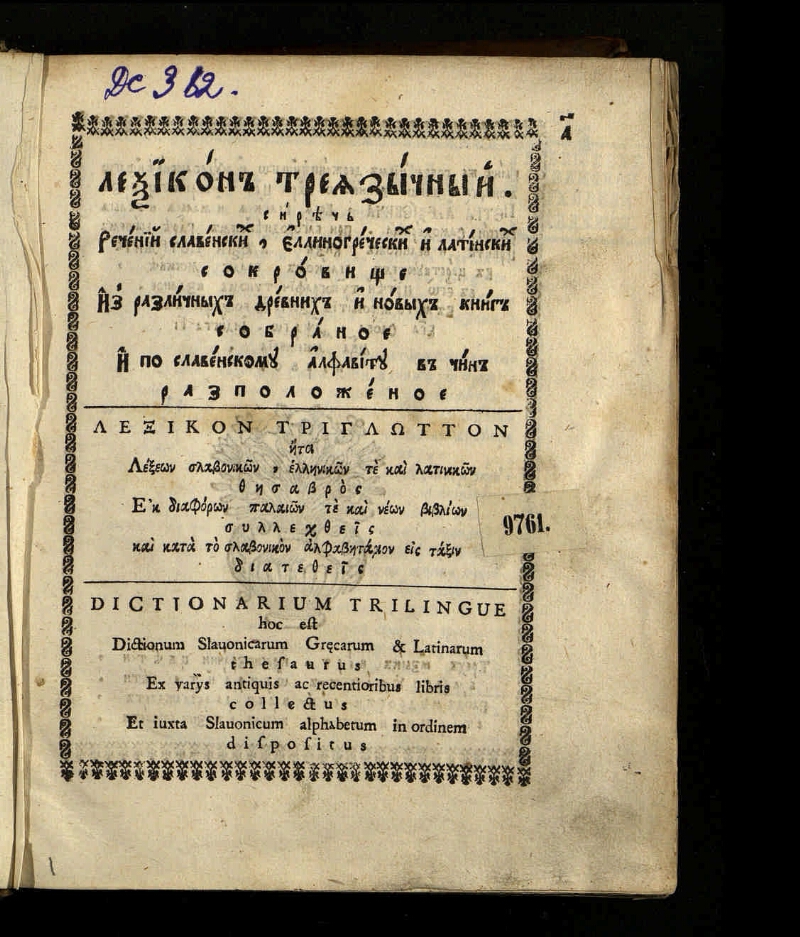 Дс 312.
а҃
леѯїко́нъ треѧзы́чный.
сирѣчь
рече́нїй славе́нскихъ, є҆ллиногре́ческихъ и҆ лати́нскихъ
сокро́вище
и҆з̾ разли́чныхъ дре́внихъ и҆ но́выхъ кни́гъ
собра́ное
и҆ по славе́нскомꙋ а҆лфави́тꙋ въ чи́нъ
разположе́ное
ΛΕΞΙΚΟΝ ΤΡΙΓΛΩΤΤΟΝ
ἤτοι
Λέξεων σλαβονικῶν, ἑλληνικῶν τὲ καὶ λατινικῶν
θησαβρὸς
Ἐκ διαφόρων παλαιῶν τὲ καὶ νέων βιβλίων
συλλεχθεῖς
καὶ κατὰ τὸ σλαβονικὸν ἀλφαβητάριον εἰς τάξιν
διατεθεῖς
9761.
DICTIONARIUM TRILINGUE
hoc eſt
Dictionum Slauonicarum Gręcarum & Latinarum
theſaurus
Ex varÿs antiquis ac recentioribus libris
collectus
Et iuxta Slauonicum alphabetum in ordinem
diſpoſitus